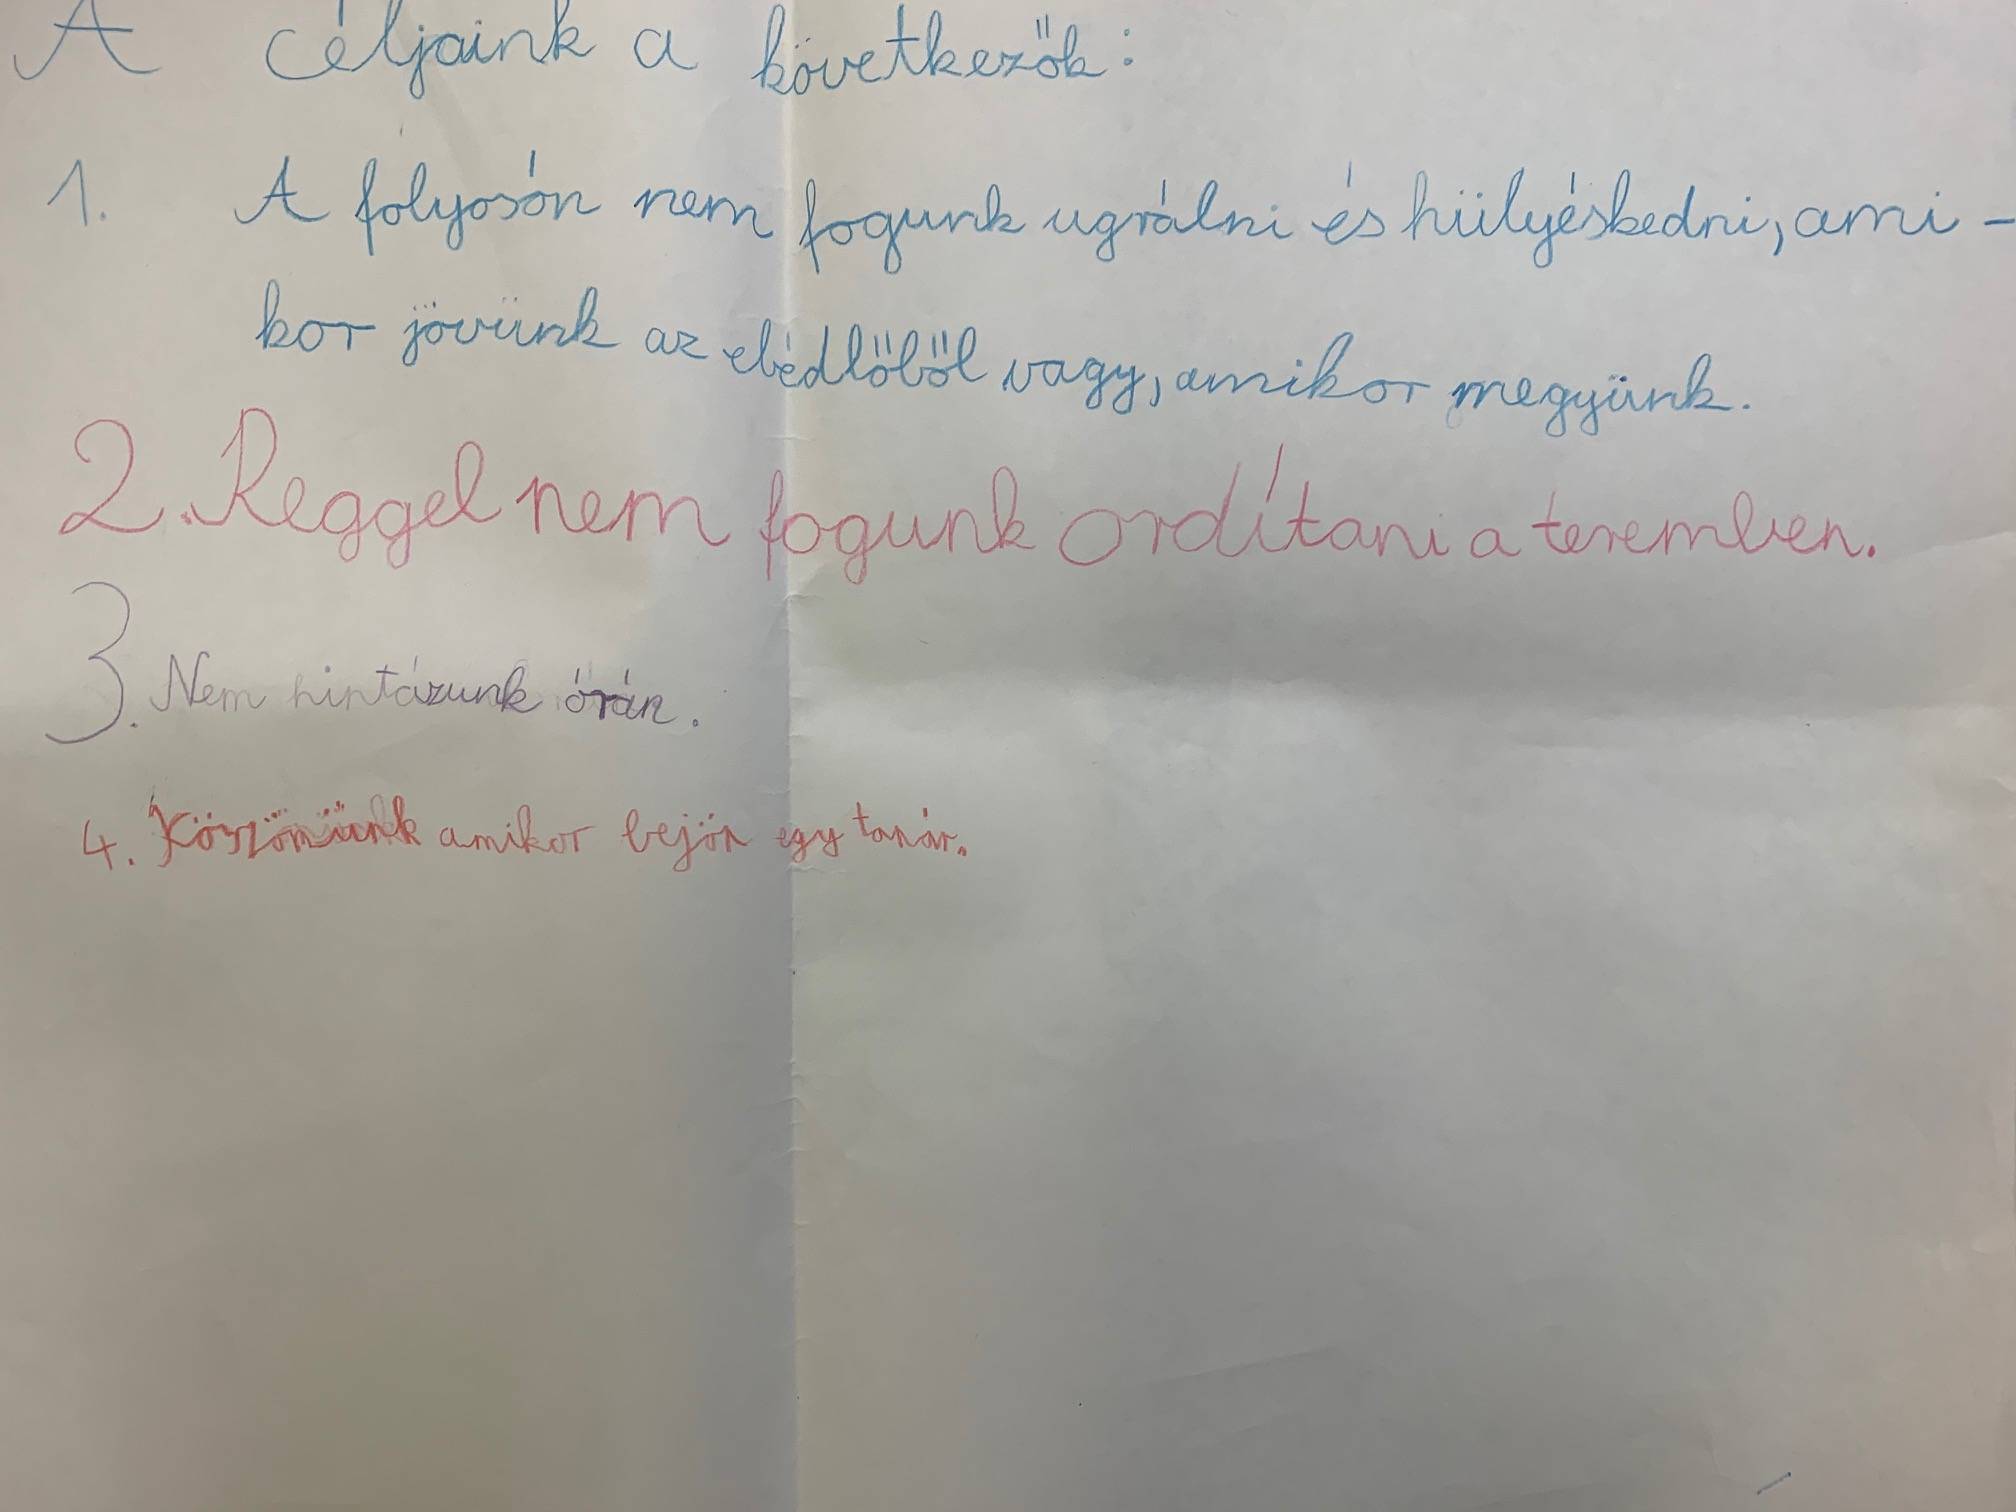 A céljaink a következők:
1. A folyosón nem fogunk ugrálni és hülyéskedni, ami-
kor jövünk az ebédlőből vagy, amikor megyünk.
2. Reggel nem fogunk ordítani a teremben.
3. Nem hintázunk órán.
4. Köszönünk amikor bejön egy tanár.